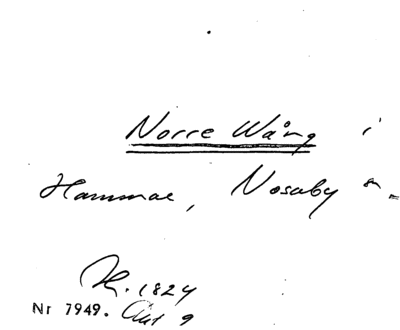 Norre Wång i
Hammar, Nosaby sn
1824
Nr 7949. 9